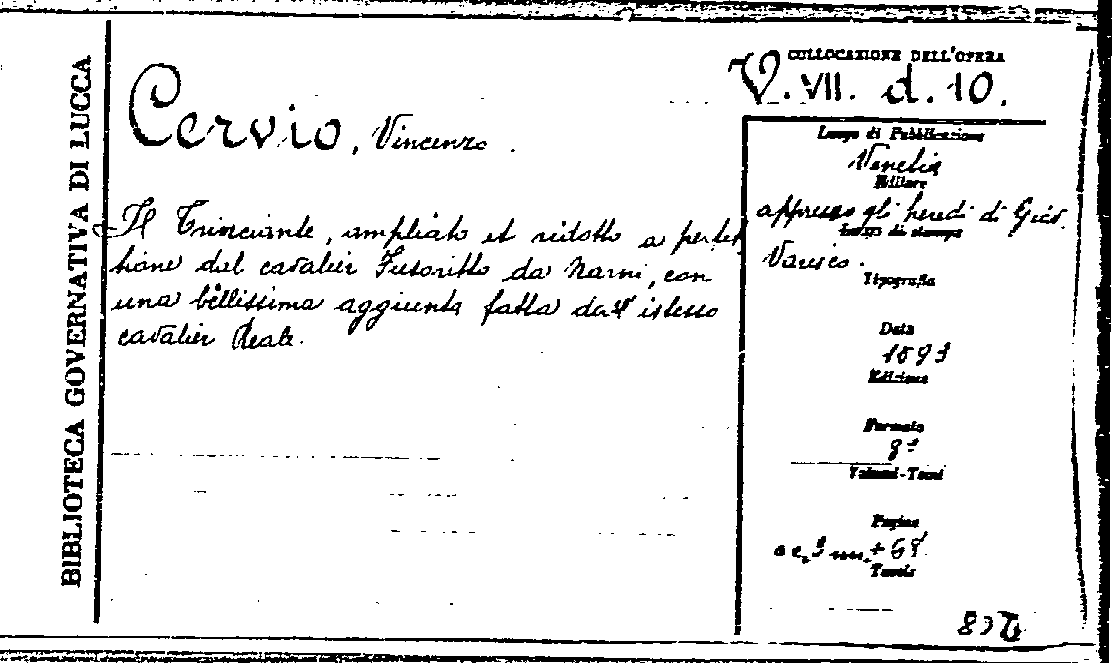 BIBLIOTECA GOVERNATIVA DI LUCCA
COLLOCAZIONE DELL'OPERA
V. VII. d. 10.
Cervio, Vincenzo.
Il Trinciante, ampliato et ridotto a perfet
tione dal cavalier Fusoritto da Narni, con
una bellissima aggiunta fatta dall'istesso
cavalier Reale.
Luogo di Pubblicazione
Venetia
Editore
appresso gli heredi di Giov.
Luogo di stampa
Varisco.
Tipografia
Data
1593
Edizione
Formato
8º
Volumi-Tomi
Pagine
nn. +
Tavole